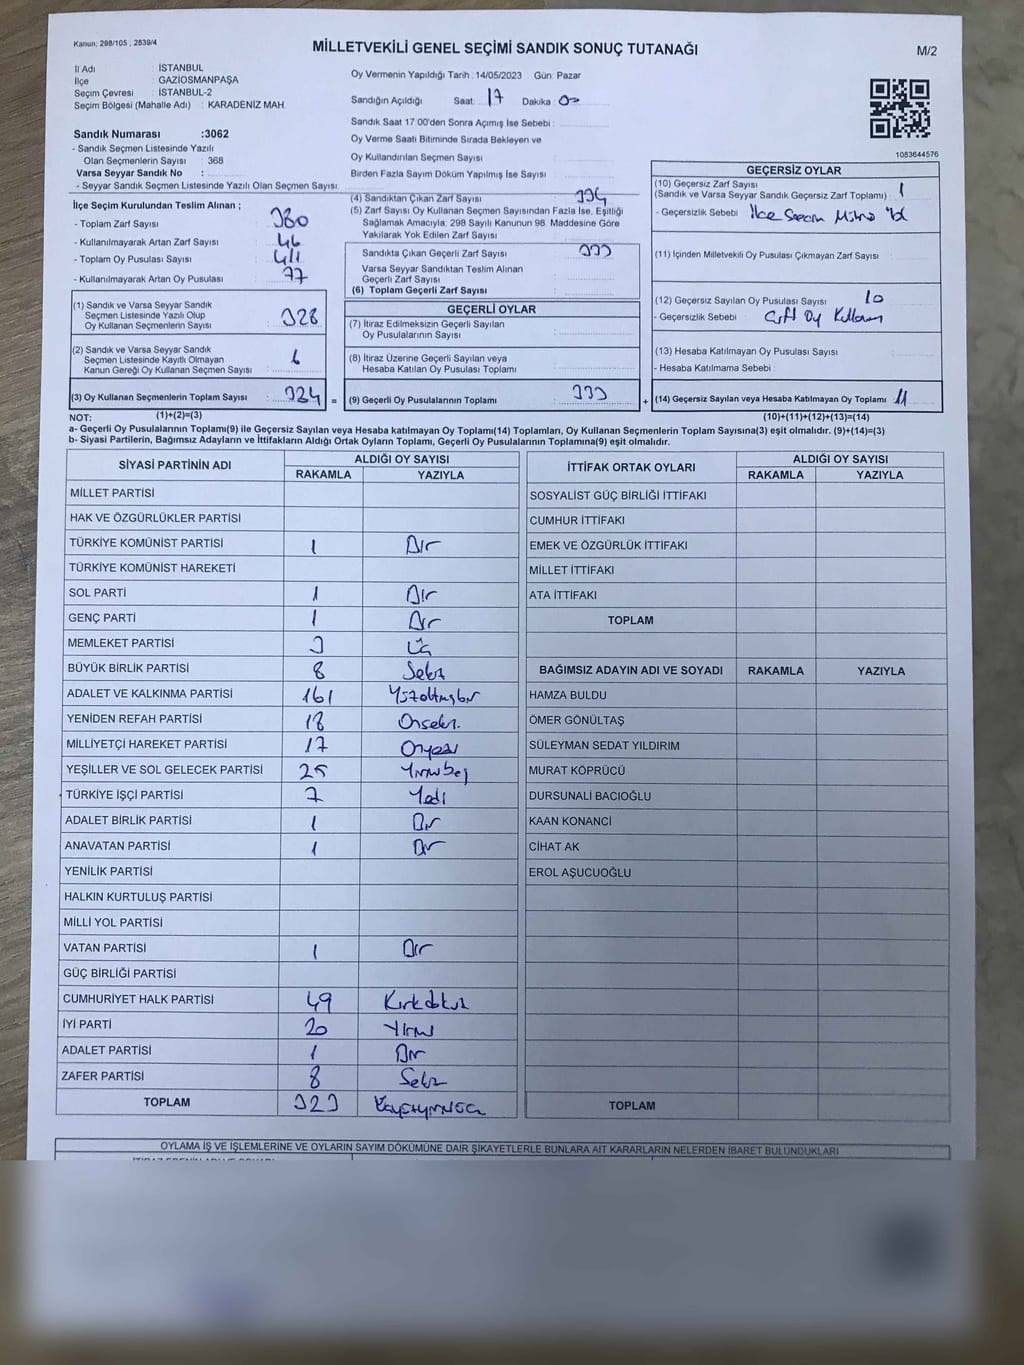 Kanun: 298/105 , 2839/4
MİLLETVEKİLİ GENEL SEÇİMİ SANDIK SONUÇ TUTANAĞI
M/2
İl Adı : İSTANBUL
İlçe : GAZİOSMANPAŞA
Seçim Çevresi : İSTANBUL-2
Seçim Bölgesi (Mahalle Adı) : KARADENİZ MAH.
Sandık Numarası :3062
- Sandık Seçmen Listesinde Yazılı
Olan Seçmenlerin Sayısı : 368
Varsa Seyyar Sandık No :
- Seyyar Sandık Seçmen Listesinde Yazılı Olan Seçmen Sayısı:
Oy Vermenin Yapıldığı Tarih : 14/05/2023 Gün: Pazar
Sandığın Açıldığı Saat: 17 Dakika : 00
Sandık Saat 17:00'den Sonra Açımış İse Sebebi :
Oy Verme Saati Bitiminde Sırada Bekleyen ve
Oy Kullandırılan Seçmen Sayısı
Birden Fazla Sayım Döküm Yapılmış İse Sayısı
1083644576
İlçe Seçim Kurulundan Teslim Alınan ;
- Toplam Zarf Sayısı : 380
- Kullanılmayarak Artan Zarf Sayısı : 46
- Toplam Oy Pusulası Sayısı : 411
- Kullanılmayarak Artan Oy Pusulası : 77
(1) Sandık ve Varsa Seyyar Sandık
Seçmen Listesinde Yazılı Olup
Oy Kullanan Seçmenlerin Sayısı : 328
(2) Sandık ve Varsa Seyyar Sandık
Seçmen Listesinde Kayıtlı Olmayan
Kanun Gereği Oy Kullanan Seçmen Sayısı : 6
(3) Oy Kullanan Seçmenlerin Toplam Sayısı : 334 =
(4) Sandıktan Çıkan Zarf Sayısı : 334
(5) Zarf Sayısı Oy Kullanan Seçmen Sayısından Fazla İse, Eşitliği
Sağlamak Amacıyla, 298 Sayılı Kanunun 98. Maddesine Göre
Yakılarak Yok Edilen Zarf Sayısı
Sandıkta Çıkan Geçerli Zarf Sayısı : 333
Varsa Seyyar Sandıktan Teslim Alınan
Geçerli Zarf Sayısı :
(6) Toplam Geçerli Zarf Sayısı :
GEÇERLİ OYLAR
(7) İtiraz Edilmeksizin Geçerli Sayılan
Oy Pusulalarının Sayısı :
(8) İtiraz Üzerine Geçerli Sayılan veya
Hesaba Katılan Oy Pusulası Toplamı :
(9) Geçerli Oy Pusulalarının Toplamı : 333 +
GEÇERSİZ OYLAR
(10) Geçersiz Zarf Sayısı
(Sandık ve Varsa Seyyar Sandık Geçersiz Zarf Toplamı) : 1
- Geçersizlik Sebebi : İlce Secim
(11) İçinden Milletvekili Oy Pusulası Çıkmayan Zarf Sayısı :
(12) Geçersiz Sayılan Oy Pusulası Sayısı : 10
- Geçersizlik Sebebi : Çift Oy Kullanım
(13) Hesaba Katılmayan Oy Pusulası Sayısı :
- Hesaba Katılmama Sebebi :
(14) Geçersiz Sayılan veya Hesaba Katılmayan Oy Toplamı : 11
NOT: (1)+(2)=(3)
(10)+(11)+(12)+(13)=(14)
a- Geçerli Oy Pusulalarının Toplamı(9) ile Geçersiz Sayılan veya Hesaba katılmayan Oy Toplamı(14) Toplamları, Oy Kullanan Seçmenlerin Toplam Sayısına(3) eşit olmalıdır. (9)+(14)=(3)
b- Siyasi Partilerin, Bağımsız Adayların ve İttifakların Aldığı Ortak Oyların Toplamı, Geçerli Oy Pusulalarının Toplamına(9) eşit olmalıdır.
SİYASİ PARTİNİN ADI ALDIĞI OY SAYISI
RAKAMLA YAZIYLA
MİLLET PARTİSİ
HAK VE ÖZGÜRLÜKLER PARTİSİ
TÜRKİYE KOMÜNİST PARTİSİ 1 Bir
TÜRKİYE KOMÜNİST HAREKETİ
SOL PARTİ 1 Bir
GENÇ PARTİ 1 Bir
MEMLEKET PARTİSİ 3 Üç
BÜYÜK BİRLİK PARTİSİ 8 Sekiz
ADALET VE KALKINMA PARTİSİ 161 Yüzaltmışbir
YENİDEN REFAH PARTİSİ 18 Onsekiz
MİLLİYETÇİ HAREKET PARTİSİ 17 Onyedi
YEŞİLLER VE SOL GELECEK PARTİSİ 25 Yirmibeş
TÜRKİYE İŞÇİ PARTİSİ 7 Yedi
ADALET BİRLİK PARTİSİ 1 Bir
ANAVATAN PARTİSİ 1 Bir
YENİLİK PARTİSİ
HALKIN KURTULUŞ PARTİSİ
MİLLİ YOL PARTİSİ
VATAN PARTİSİ 1 Bir
GÜÇ BİRLİĞİ PARTİSİ
CUMHURİYET HALK PARTİSİ 49 Kırkdokuz
İYİ PARTİ 20 Yirmi
ADALET PARTİSİ 1 Bir
ZAFER PARTİSİ 8 Sekiz
TOPLAM 323 Üçyüzyirmiüç
İTTİFAK ORTAK OYLARI ALDIĞI OY SAYISI
RAKAMLA YAZIYLA
SOSYALİST GÜÇ BİRLİĞİ İTTİFAKI
CUMHUR İTTİFAKI
EMEK VE ÖZGÜRLÜK İTTİFAKI
MİLLET İTTİFAKI
ATA İTTİFAKI
TOPLAM
BAĞIMSIZ ADAYIN ADI VE SOYADI RAKAMLA YAZIYLA
HAMZA BULDU
ÖMER GÖNÜLTAŞ
SÜLEYMAN SEDAT YILDIRIM
MURAT KÖPRÜCÜ
DURSUNALİ BACIOĞLU
KAAN KONANCİ
CİHAT AK
EROL AŞUCUOĞLU
TOPLAM
OYLAMA İŞ VE İŞLEMLERİNE VE OYLARIN SAYIM DÖKÜMÜNE DAİR ŞİKAYETLERLE BUNLARA AİT KARARLARIN NELERDEN İBARET BULUNDUKLARI